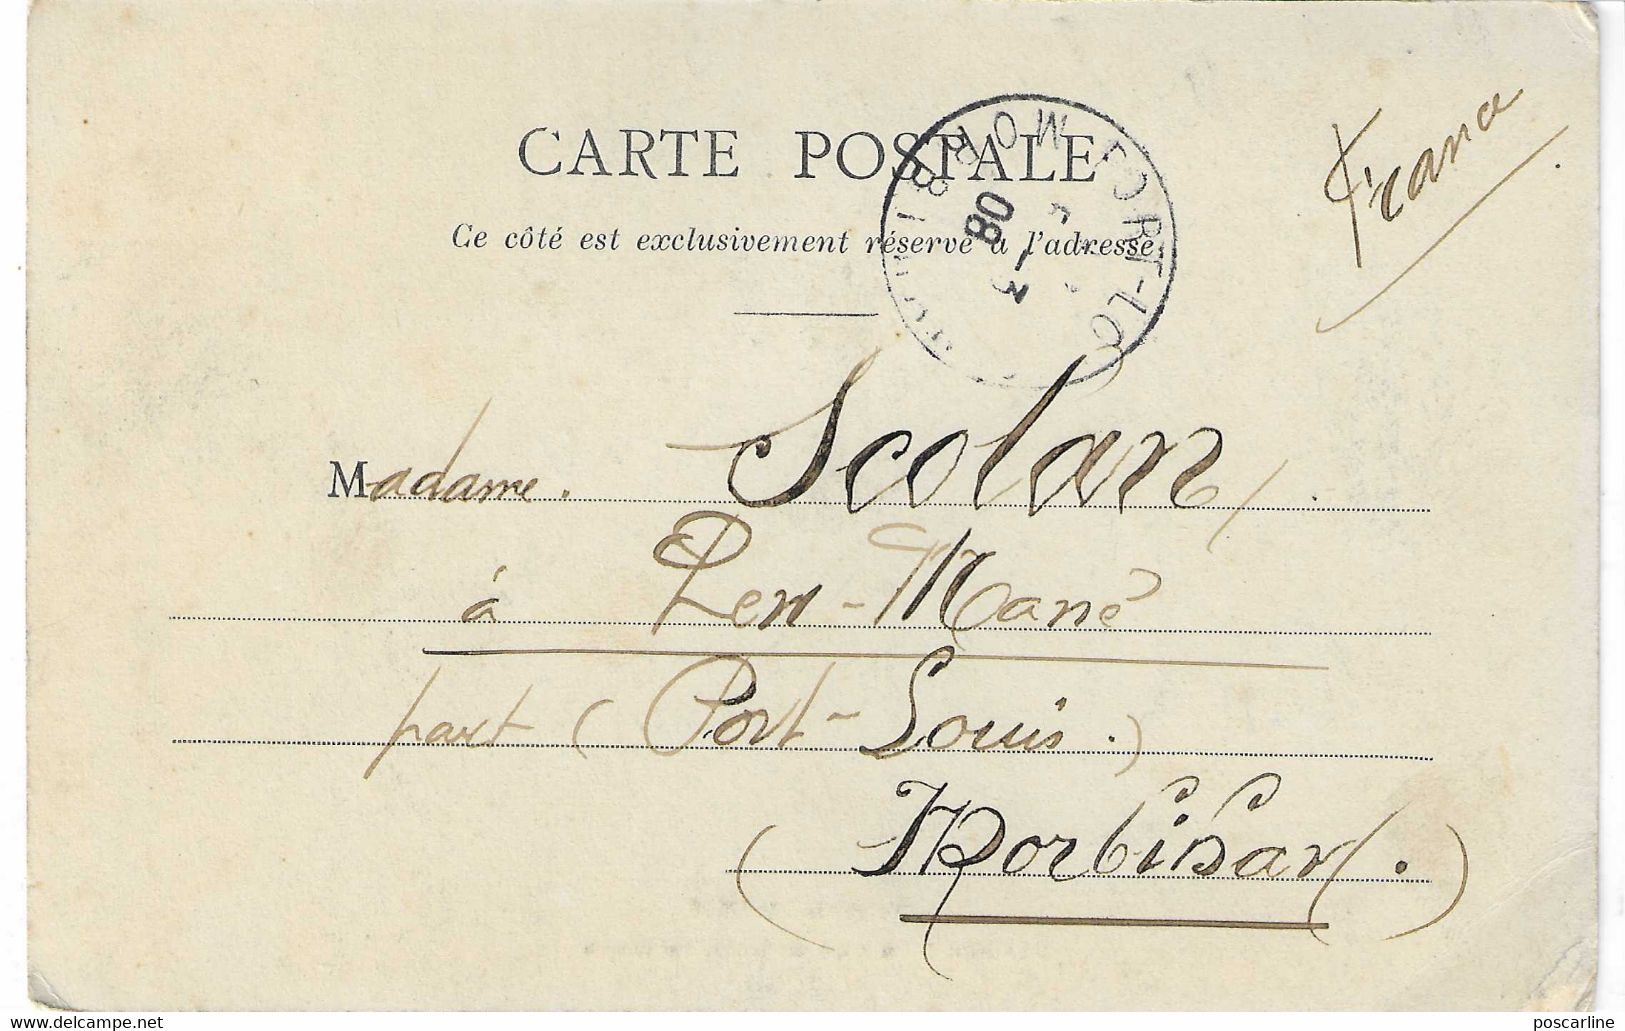 CARTE POSTALE
Ce côté est exclusivement réservé à l'adresse.
France
Madame. Scolan
à Pen-Mané
part (Port-Louis.)
(Morbihan).
PORT-LO
MORBI
3
08
www.delcampe.net
poscarline